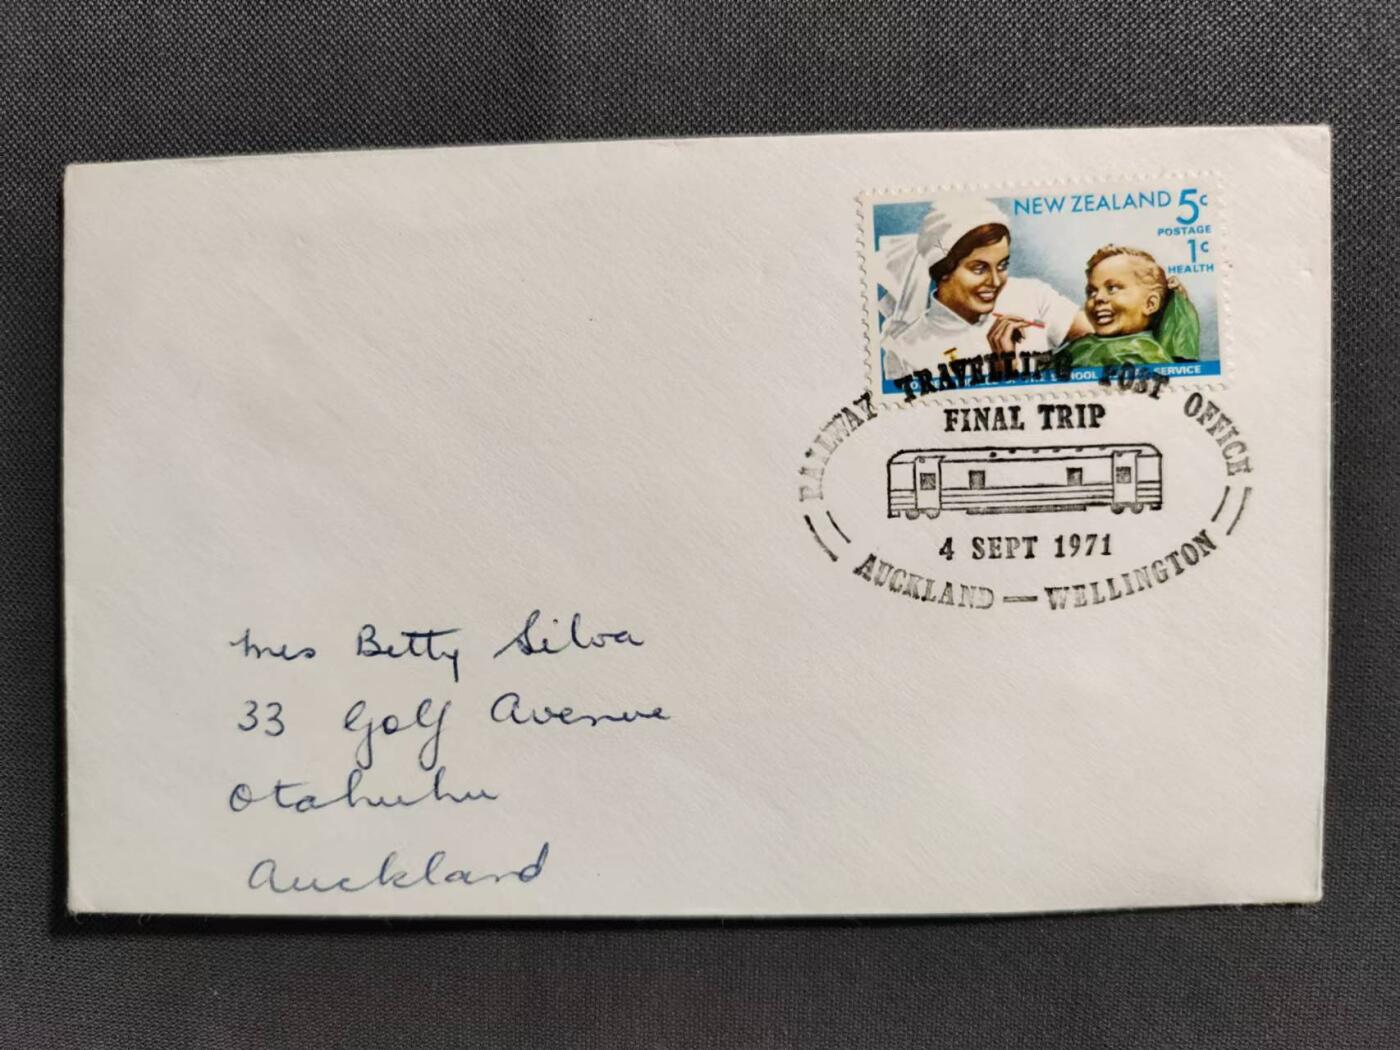 NEW ZEALAND 5c
POSTAGE
1c
HEALTH
SCHOOL SERVICE
RAILWAY TRAVELLING POST OFFICE
FINAL TRIP
4 SEPT 1971
AUCKLAND — WELLINGTON
Mrs Betty Silva
33 Golf Avenue
Otahuhu
Auckland